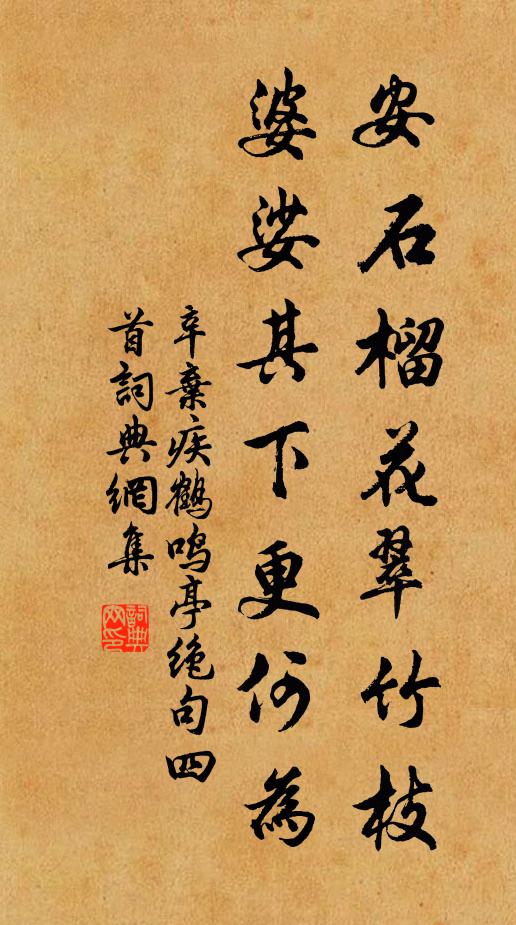 安石榴花翠竹枝
婆娑其下更何為
辛棄疾鶴鳴亭絶句四
首詞典網集
詞典网印